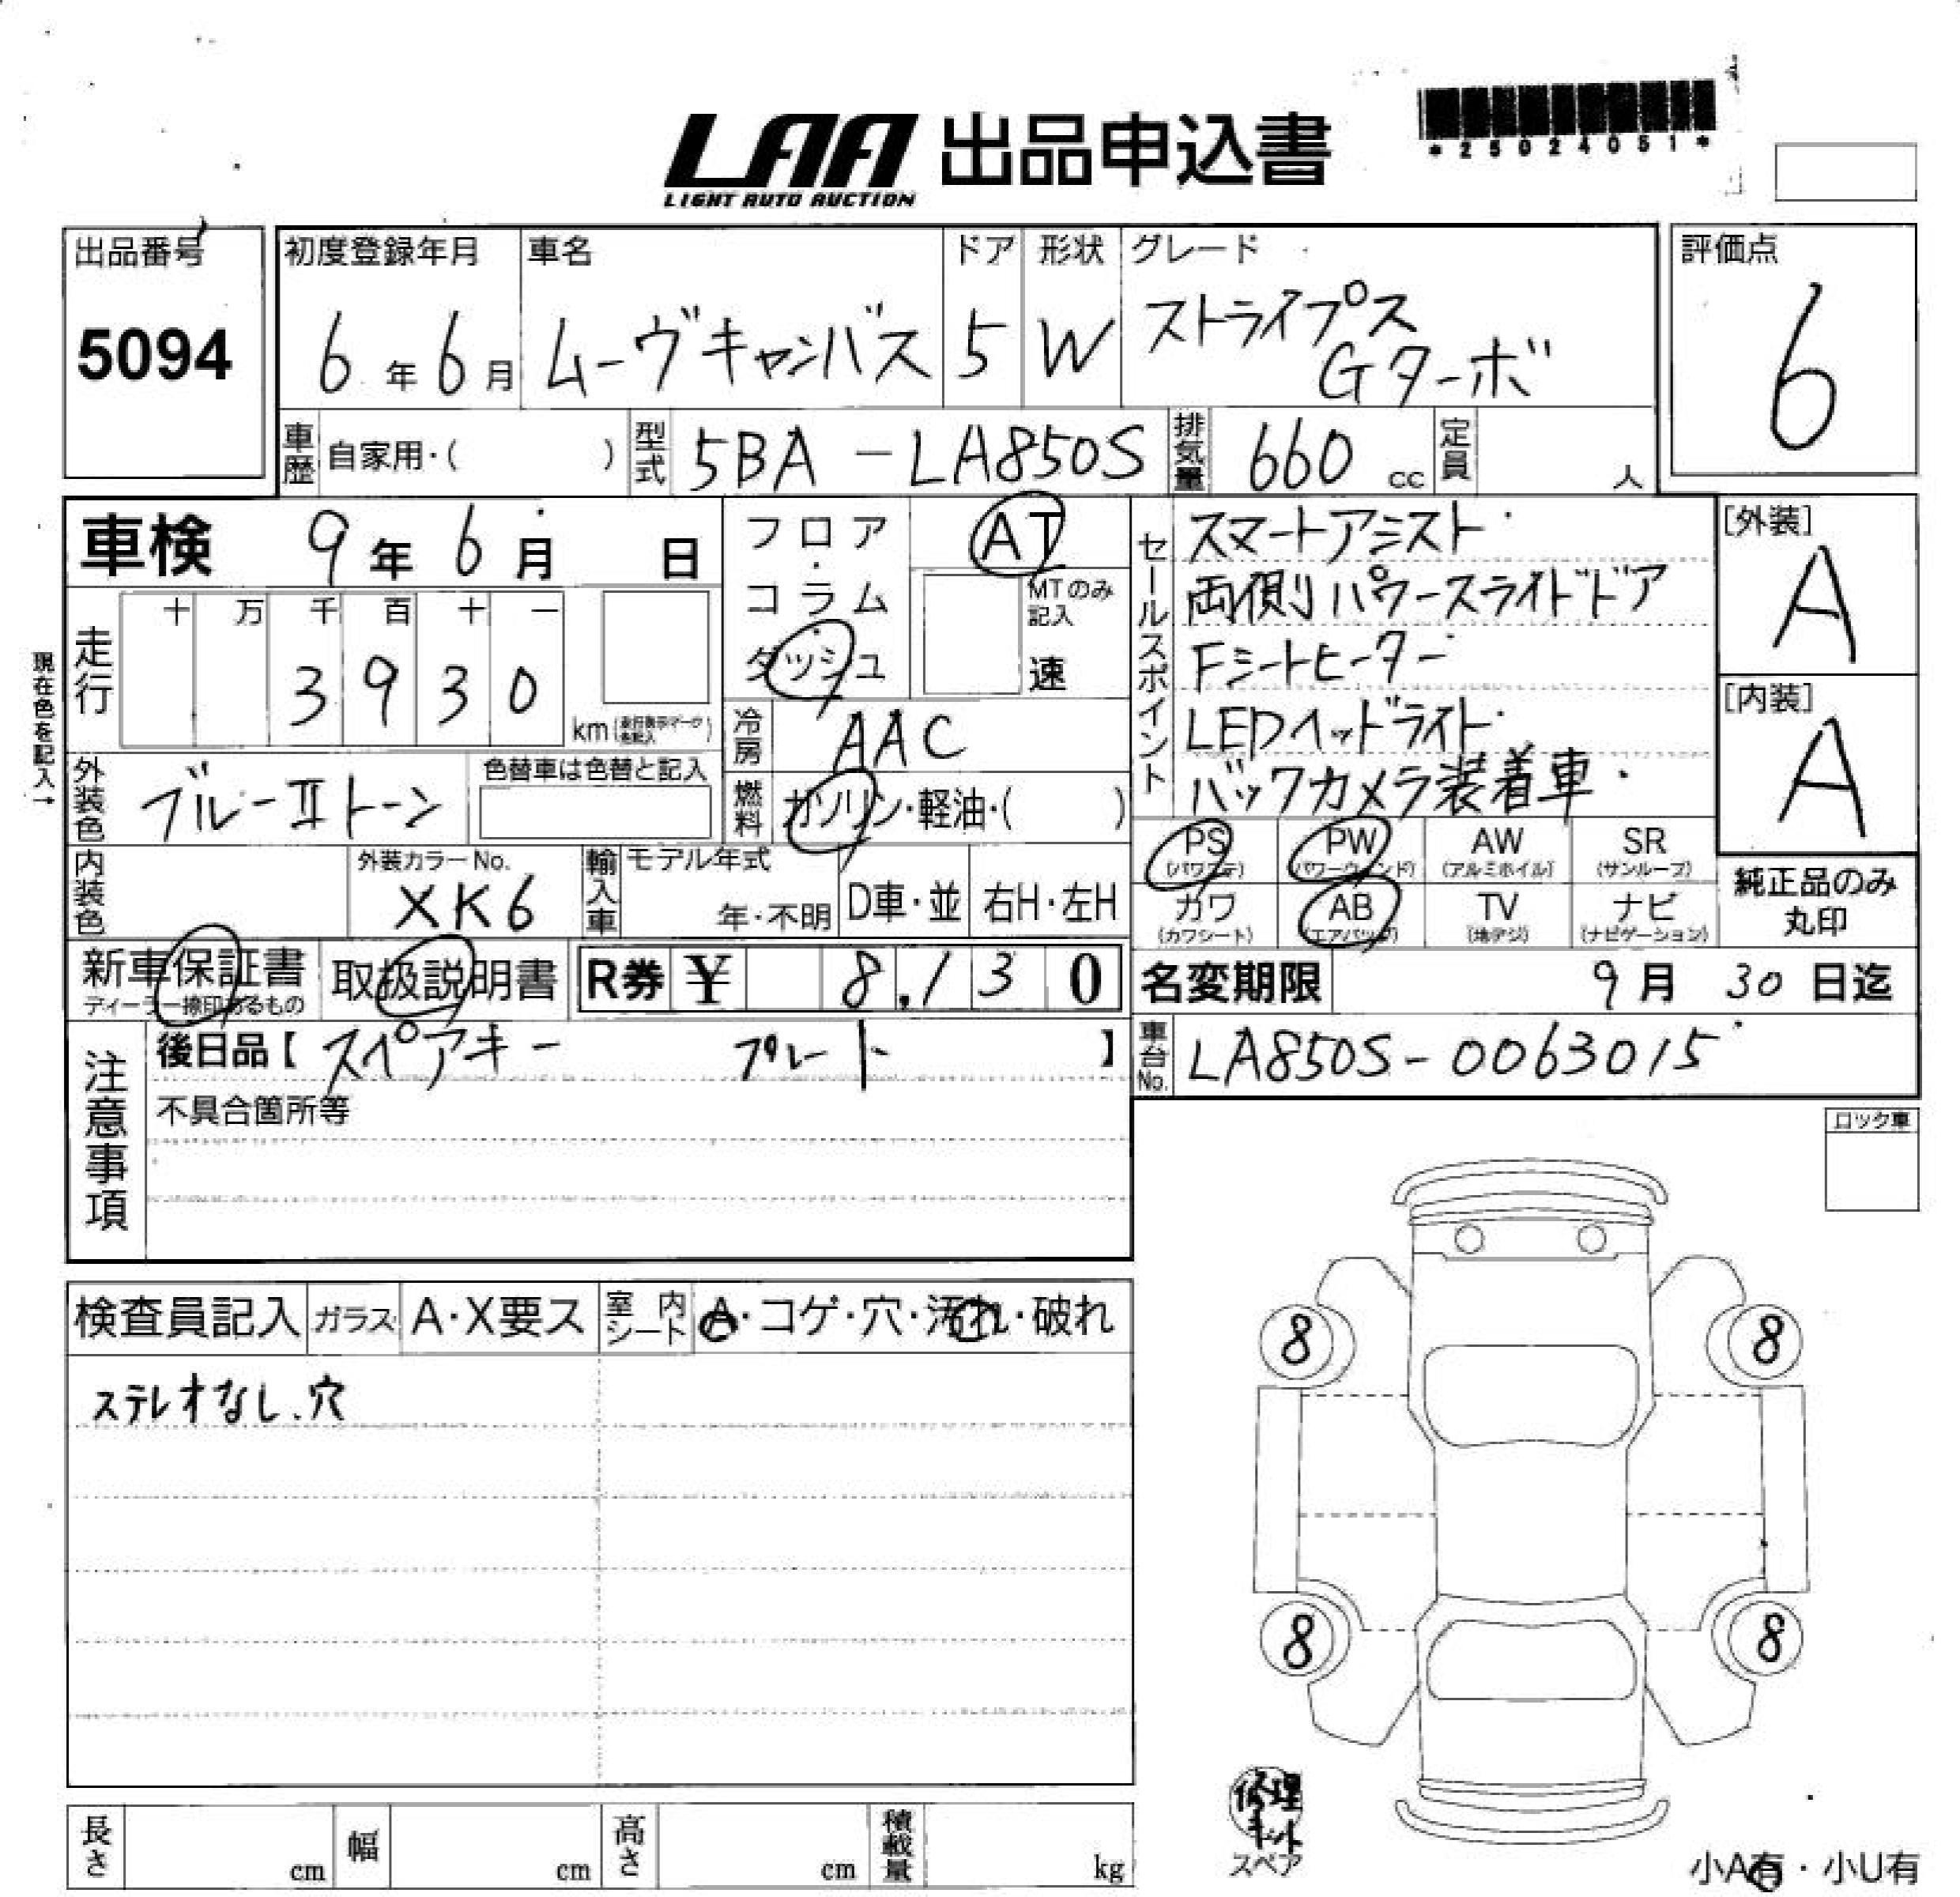 LAA 出品申込書
LIGHT AUTO AUCTION
*25024051*
出品番号
5094
初度登録年月
6年6月
車名
ムーヴキャンバス
ドア
5
形状
W
グレード
ストライプス
Gターボ
評価点
6
車歴 自家用・( )
型式 5BA-LA850S
排気量 660 cc
定員 人
車検 9年6月 日
フロア・コラム・ダッシュ
AT
MTのみ記入
速
現在色を記入→
走行
十 万 千 百 十 一
3 9 3 0
km
冷房 AAC
外装色 ブルーⅡトーン
色替車は色替と記入
燃料 ガソリン・軽油・( )
内装色
外装カラーNo.
XK6
輸入車
モデル年式
年・不明
D車・並
右H・左H
セールスポイント
スマートアシスト
両側パワースライドドア
Fシートヒーター
LEDヘッドライト
バックカメラ装着車
[外装]
A
[内装]
A
PS (パワステ)
PW (パワーウィンド)
AW (アルミホイル)
SR (サンルーフ)
カワ (カワシート)
AB (エアバッグ)
TV (地デジ)
ナビ (ナビゲーション)
純正品のみ
丸印
新車保証書
ディーラー捺印あるもの
取扱説明書
R券 ¥ 8,130
名変期限 9月 30日迄
注意事項
後日品【 スペアキー プレート 】
不具合箇所等
車台No. LA850S-0063015
ロック車
検査員記入
ガラス A・X要ス
室内シート A・コゲ・穴・汚れ・破れ
ステレオなし、穴
8
8
8
8
修理キット
スペア
長さ cm
幅 cm
高さ cm
積載量 kg
小A有・小U有